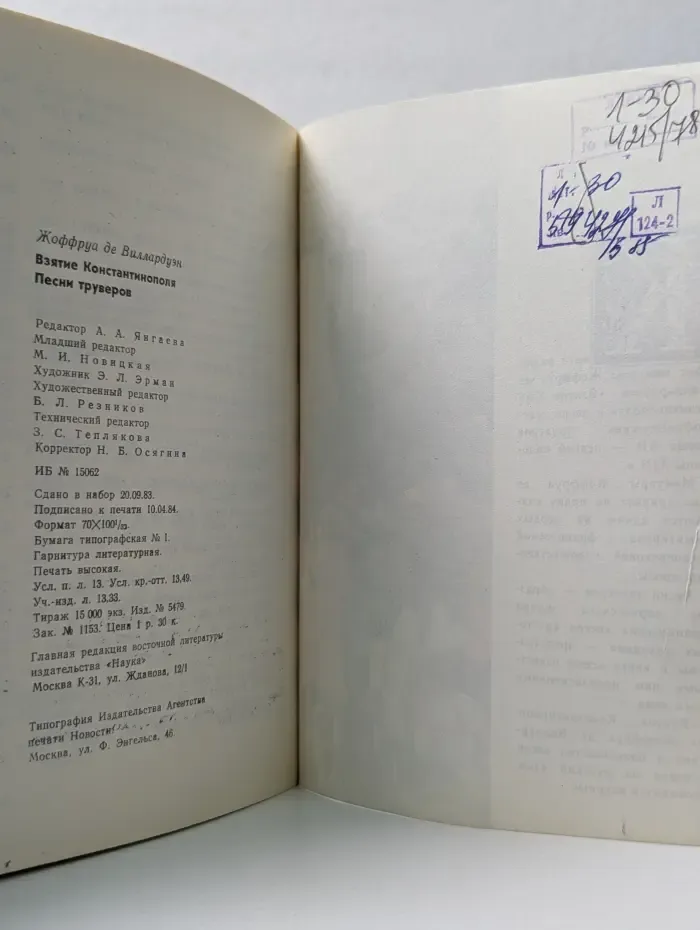 Жоффруа де Виллардуэн
Взятие Константинополя
Песни труверов
Редактор А. А. Янгаева
Младший редактор
М. И. Новицкая
Художник Э. Л. Эрман
Художественный редактор
Б. Л. Резников
Технический редактор
З. С. Теплякова
Корректор Н. Б. Осягина
ИБ № 15062
Сдано в набор 20.09.83.
Подписано к печати 10.04.84.
Формат 70×100¹/₃₂.
Бумага типографская № 1.
Гарнитура литературная.
Печать высокая.
Усл. п. л. 13. Усл. кр.-отт. 13,49.
Уч.-изд. л. 13,33.
Тираж 15 000 экз. Изд. № 5479.
Зак. № 1153. Цена 1 р. 30 к.
Главная редакция восточной литературы
издательства «Наука»
Москва К-31, ул. Жданова, 12/1
Типография Издательства Агентства
печати Новости
Москва, ул. Ф. Энгельса, 46
1-30
4215/78
Л
124-2